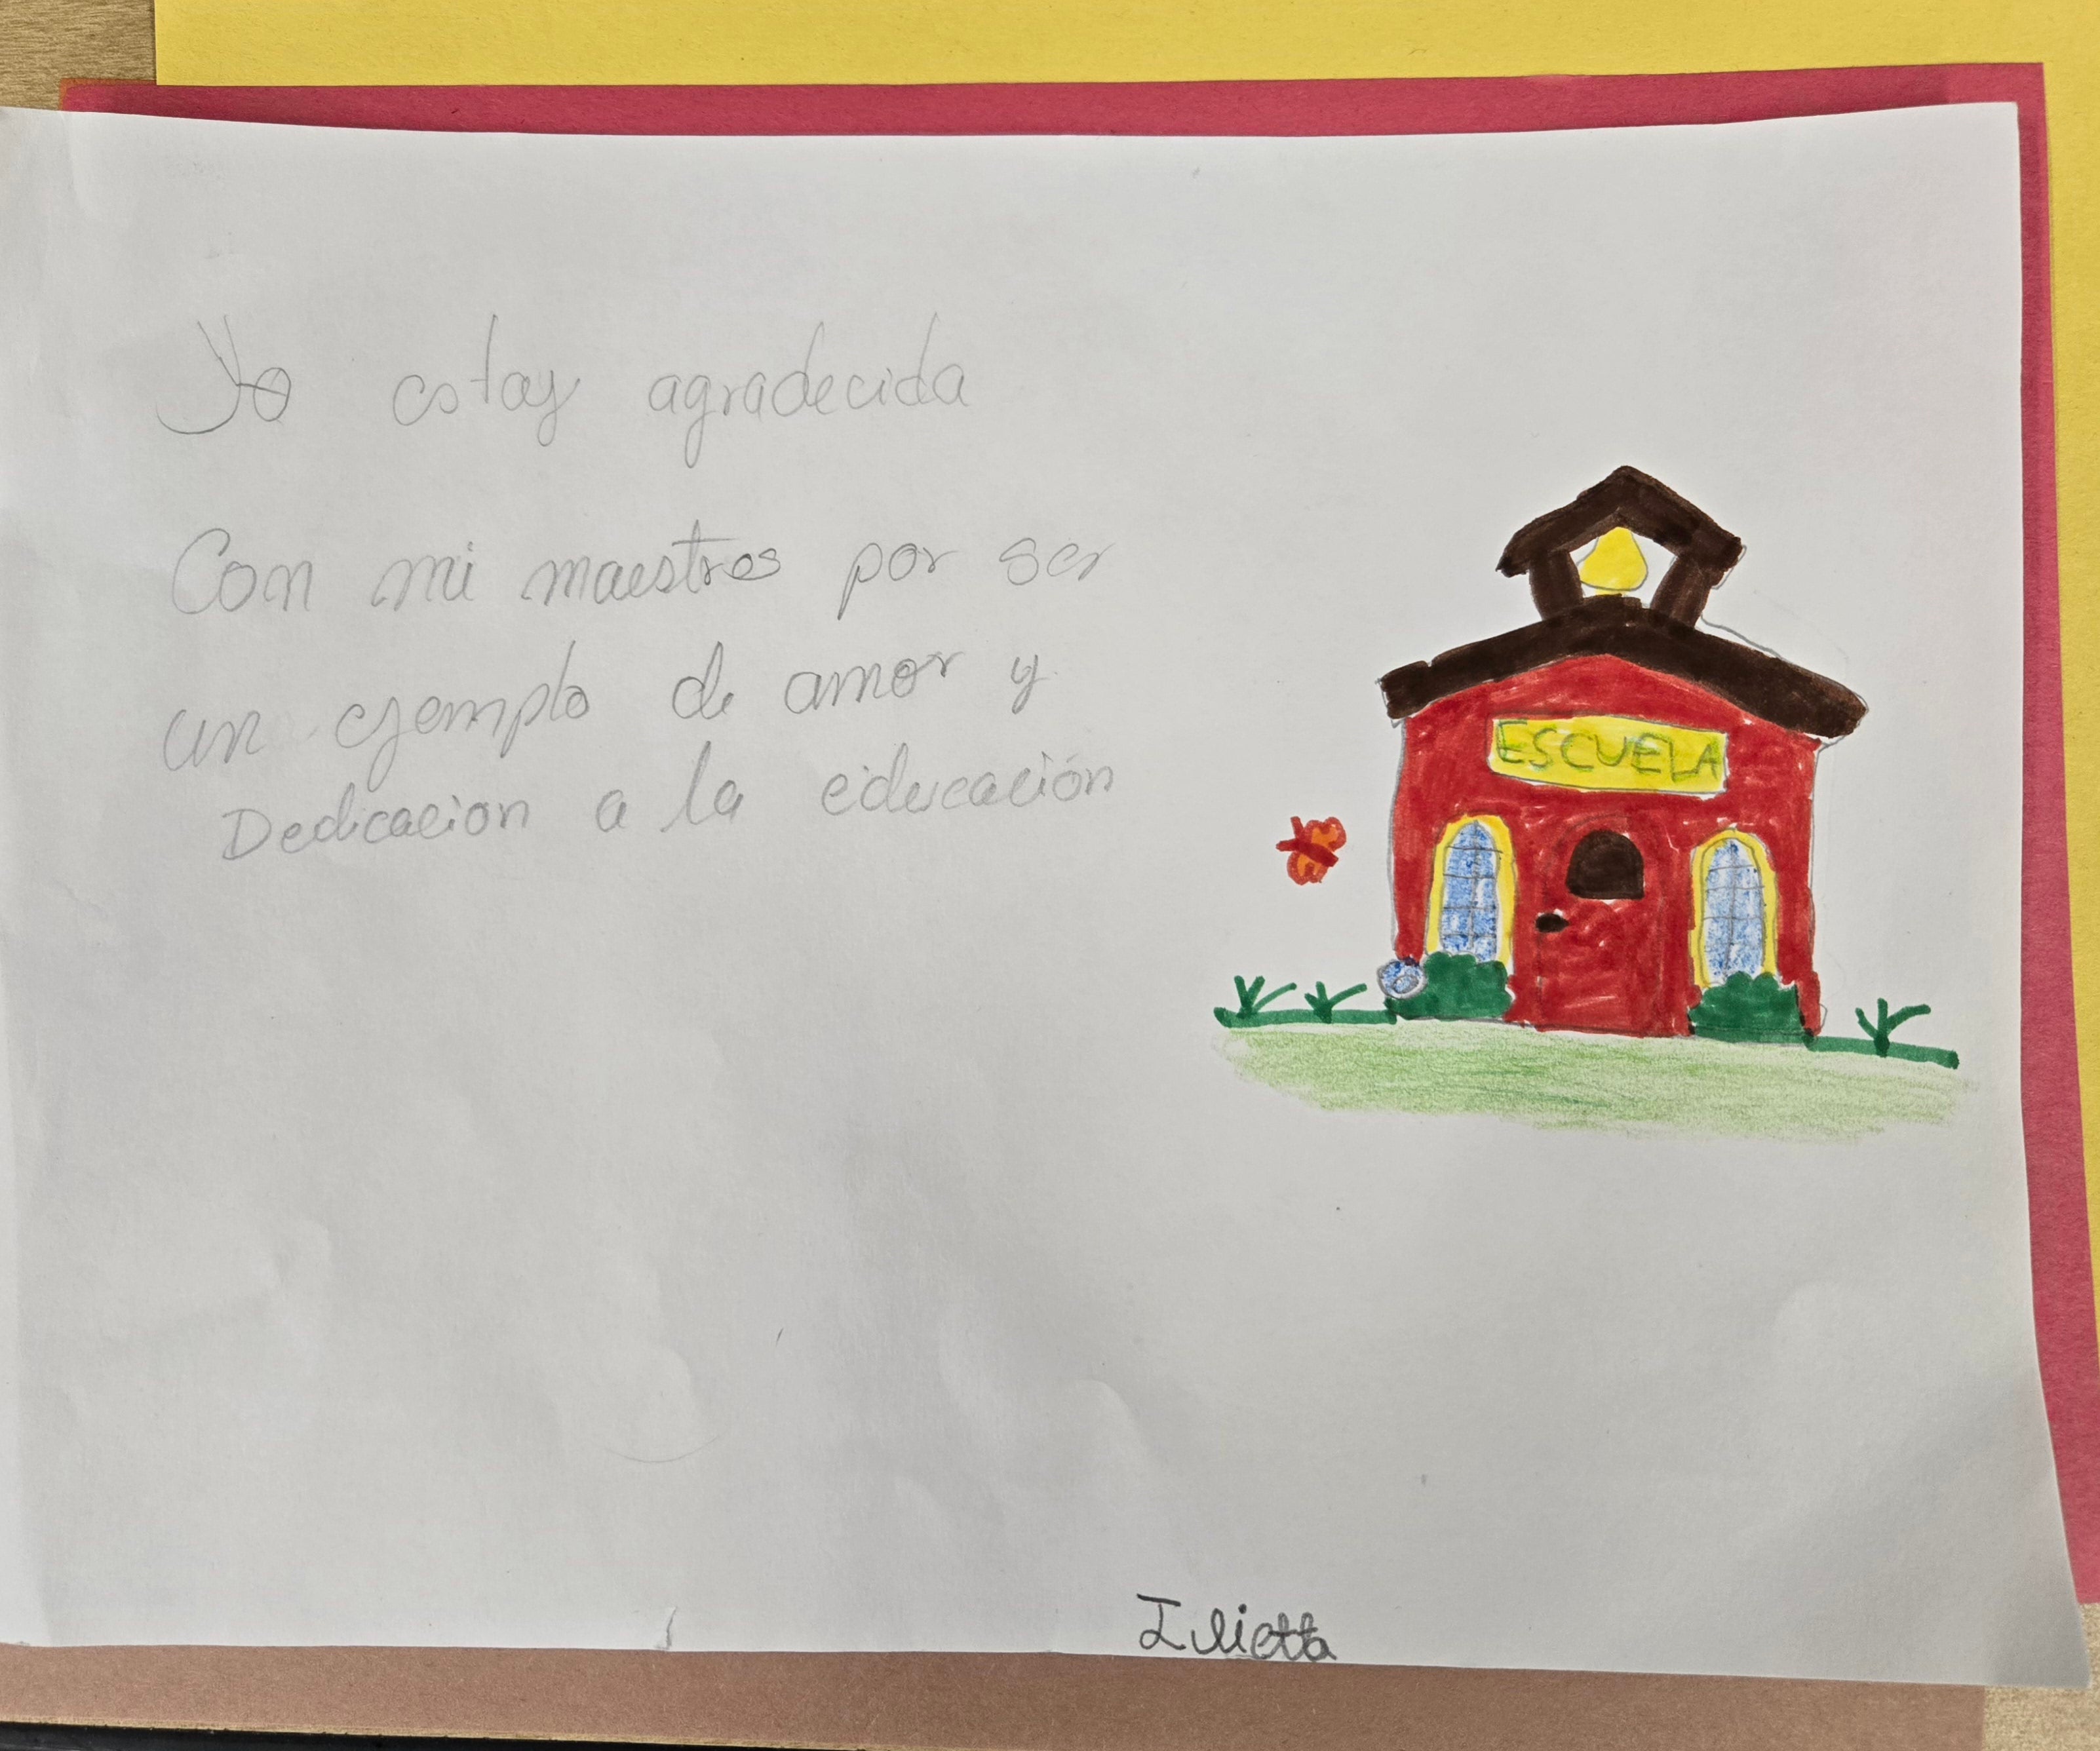 Yo estoy agradecida
Con mi maestros por ser
un ejemplo de amor y
Dedicacion a la educación
ESCUELA